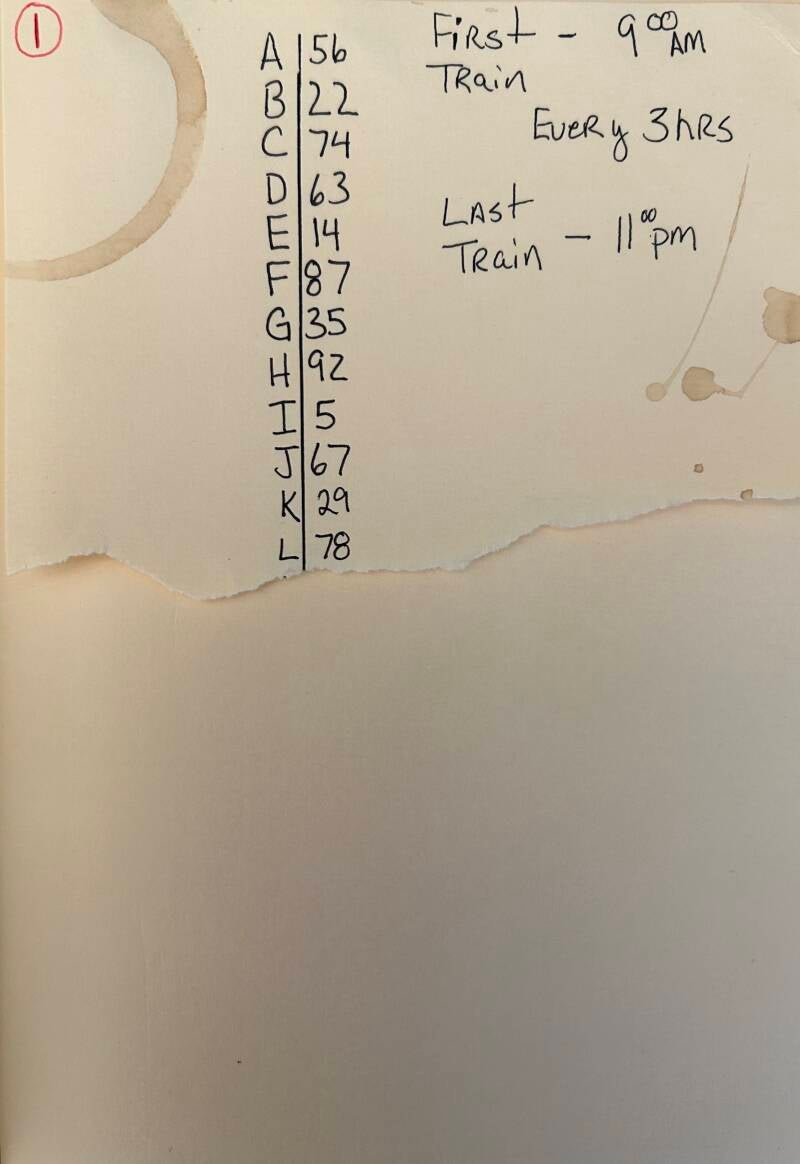 1
A 56
B 22
C 74
D 63
E 14
F 87
G 35
H 92
I 5
J 67
K 29
L 78
First - 9 00 AM
Train
Every 3 hrs
Last
Train - 11 00 pm